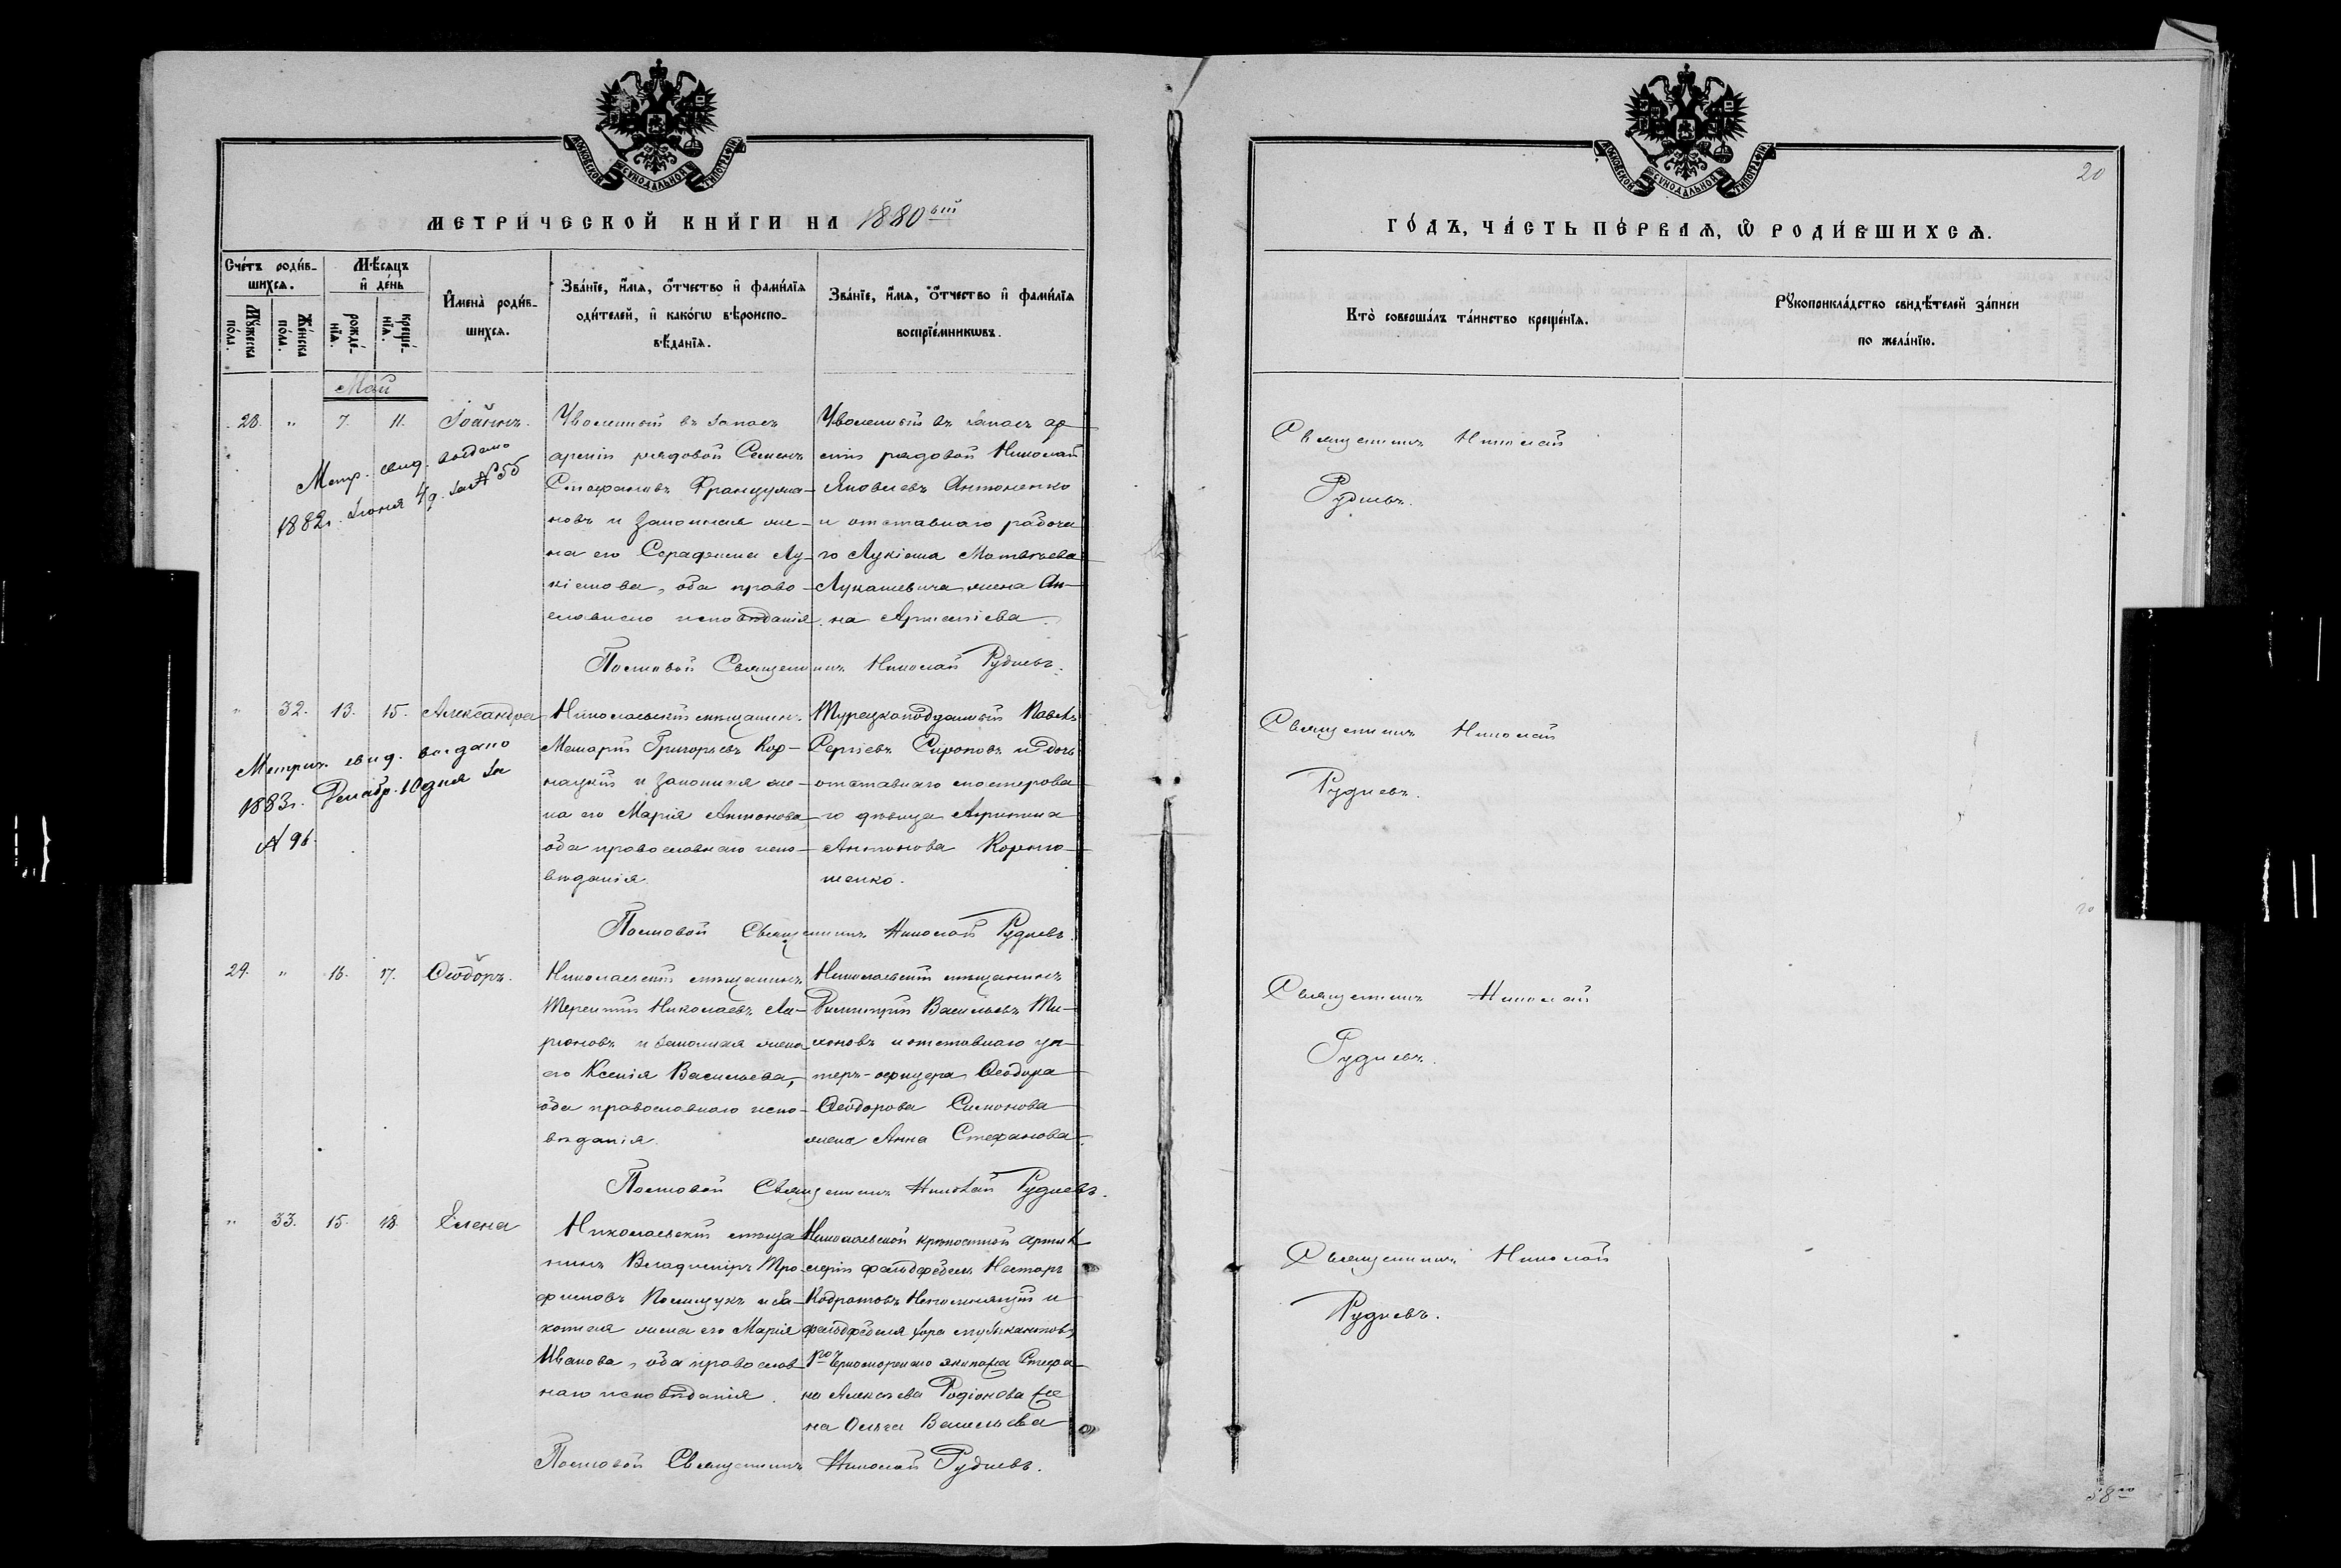 МОСКОВСКОЙ СУНОДАЛЬНОЙ ТИПОГРАФІИ
МЕТРИЧЕСКОЙ КНИГИ НА 1880ый
Счетъ родив-
шихся.
Мужеска пола.
Женска пола.
Мѣсяцъ
и день
рожде-
нїя.
креще-
нїя.
Имена родив-
шихся.
Званїе, имя, отчество и фамилїя
родителей, и какогѡ вѣроиспо-
вѣданїя.
Званїе, имя, отчество и фамилїя
воспрїемникѡвъ.
Май
28. " 7. 11. Іоаннъ.
Метр. свид. выдано
1882г. Іюня 4д. за № 55
Уволенный въ запасъ
арміи рядовой Семенъ
Стефановъ
новъ и законная же-
на его Серафима Лу-
кіанова, оба право-
славнаго исповѣданія.
Уволенный въ запасъ ар
міи рядовой Николай
Яковлевъ Антоненко
и отставнаго рабоча
го Лукіана Матвѣева
Лукашевича жена Ан-
на Арсеніева.
Приходской Священникъ Николай Рудневъ.
" 32. 13. 15. Александра
Метрич. свид. выдано
1883г. Декабр. 10 дня за
№ 96.
Николаевскій мѣщанинъ
Григорьевъ Кор-
нацкій и законная же-
на его Марія Антонова
оба православнаго испо-
вѣданія.
Турецкоподданный Павелъ
Сергіевъ Сироновъ и дочь
отставнаго мастерова
го дѣвица Агрипина
Антонова
шенко.
Священникъ Николай Рудневъ.
29. " 16. 17. Ѳеодоръ.
Николаевскій мѣщанинъ
Терентій Николаевъ Ла-
ріоновъ и законная жена
его Ксенія Васильева,
оба православнаго испо-
вѣданія.
Николаевскій мѣщанинъ
Димитрій Васильевъ Ти-
хоновъ и отставнаго ун-
теръ-офицера Ѳеодора
Ѳеодорова Симонова
жена Анна Стефанова.
Священникъ Николай Рудневъ.
" 33. 15. 18. Елена
Николаевскій мѣща
нинъ Владиміръ Тро
фимовъ Полищукъ и за-
конная жена его Марія
Иванова, оба православ
наго исповѣданія.
Николаевской крѣпостной артил
леріи фельдфебель Несторъ
Кодратовъ Непомнящій и
фельдфебеля хора музыкантовъ
1го Черноморскаго экипажа Стефа
на Алексѣева Родіонова же
на Ольга Васильева
Священникъ Николай Рудневъ.
МОСКОВСКОЙ СУНОДАЛЬНОЙ ТИПОГРАФІИ
20
ГОДЪ, ЧАСТЬ ПЕРВАЯ, Ѡ РОДИВШИХСЯ.
Кто совершалъ таинство крещенїя.
Рукоприкладство свидѣтелей записи
по желанїю.
Священникъ Николай
Рудневъ.
Священникъ Николай
Рудневъ.
Священникъ Николай
Рудневъ.
Священникъ Николай
Рудневъ.